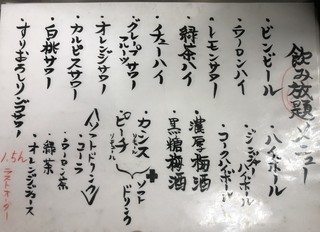 飲み放題メニュー
・ビンビール
・ウーロンハイ
・レモンサワー
・緑茶ハイ
・チューハイ
・グレープフルーツサワー
・オレンジサワー
・カルピスサワー
・白桃サワー
・すりおろしリンゴサワー
・ハイボール
・ジンジャーハイボール
・コークハイボール
・濃厚梅酒
・黒糖梅酒
・カシス
・ピーチ
+ソフトドリンク
〈ソフトドリンク〉
・コーラ
・ウーロン茶
・緑茶
・オレンジジュース
1.5h
ラストオーダー